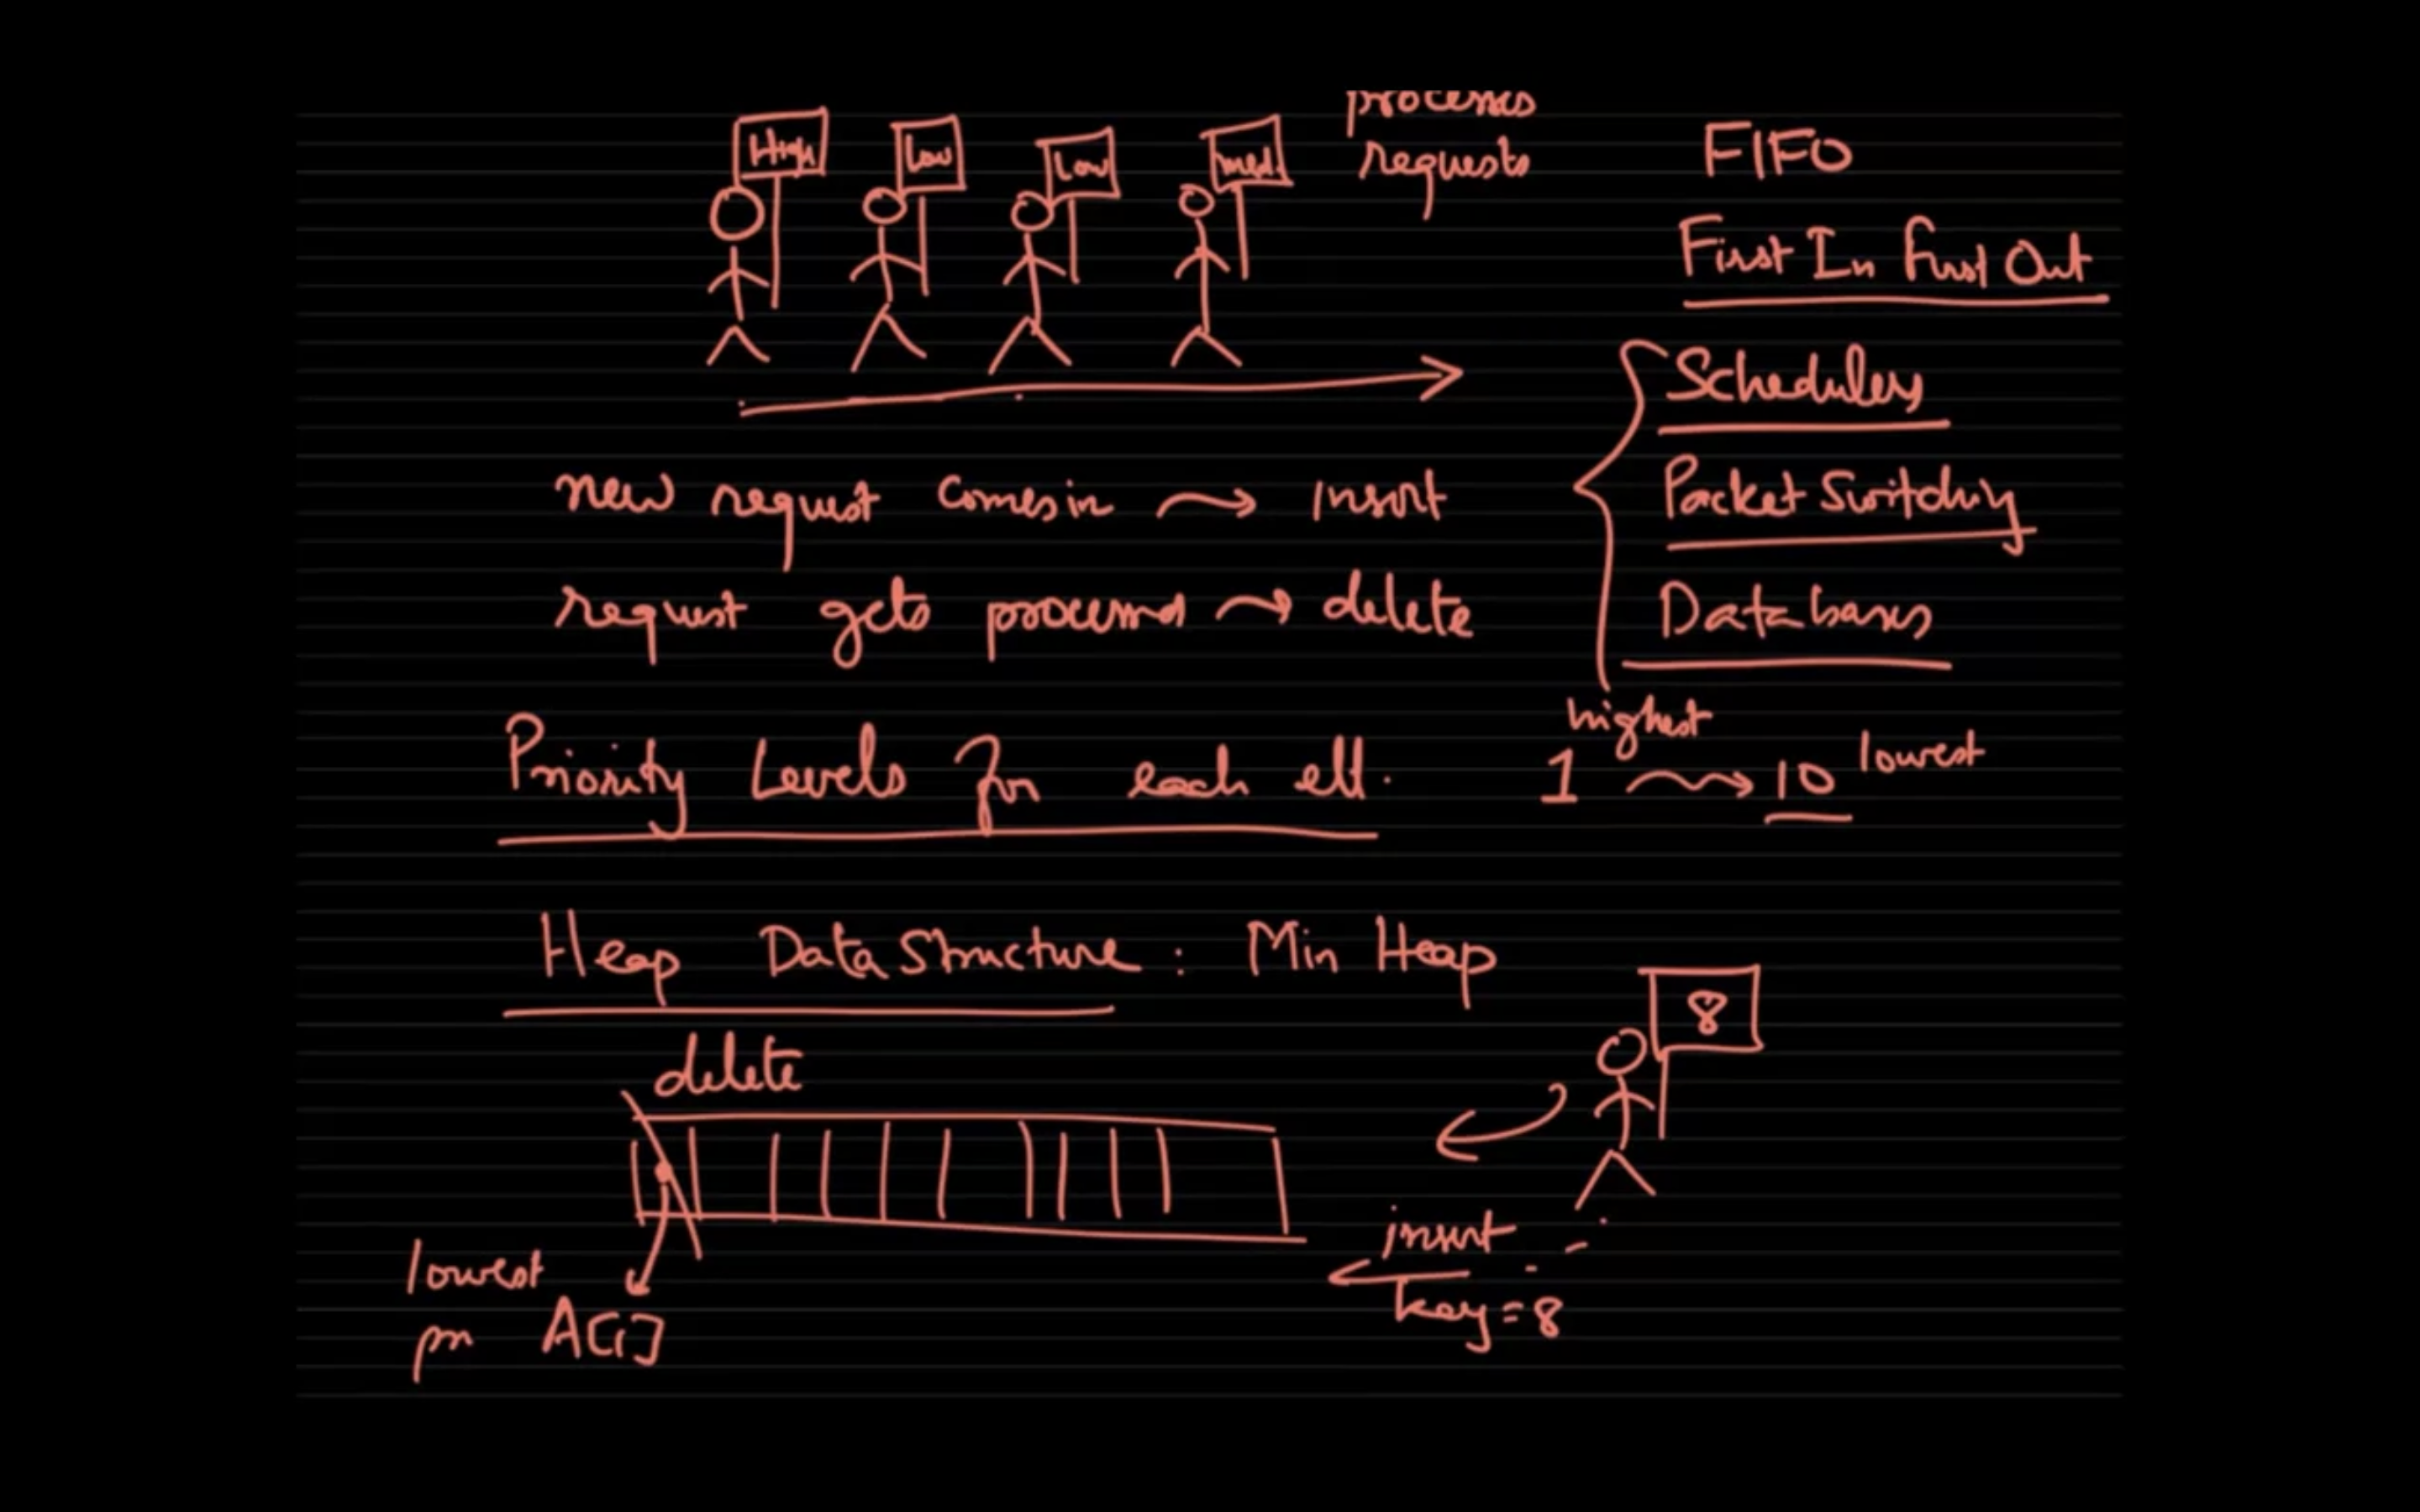 High
Low
Low
med.
processes
requests
FIFO
First In First Out
Schedulers
Packet Switching
Databases
new request comes in → insert
request gets processed → delete
Priority Levels for each elt.
1 highest → 10 lowest
Heap Data Structure : Min Heap
8
delete
insert
key=8
lowest
A[1]